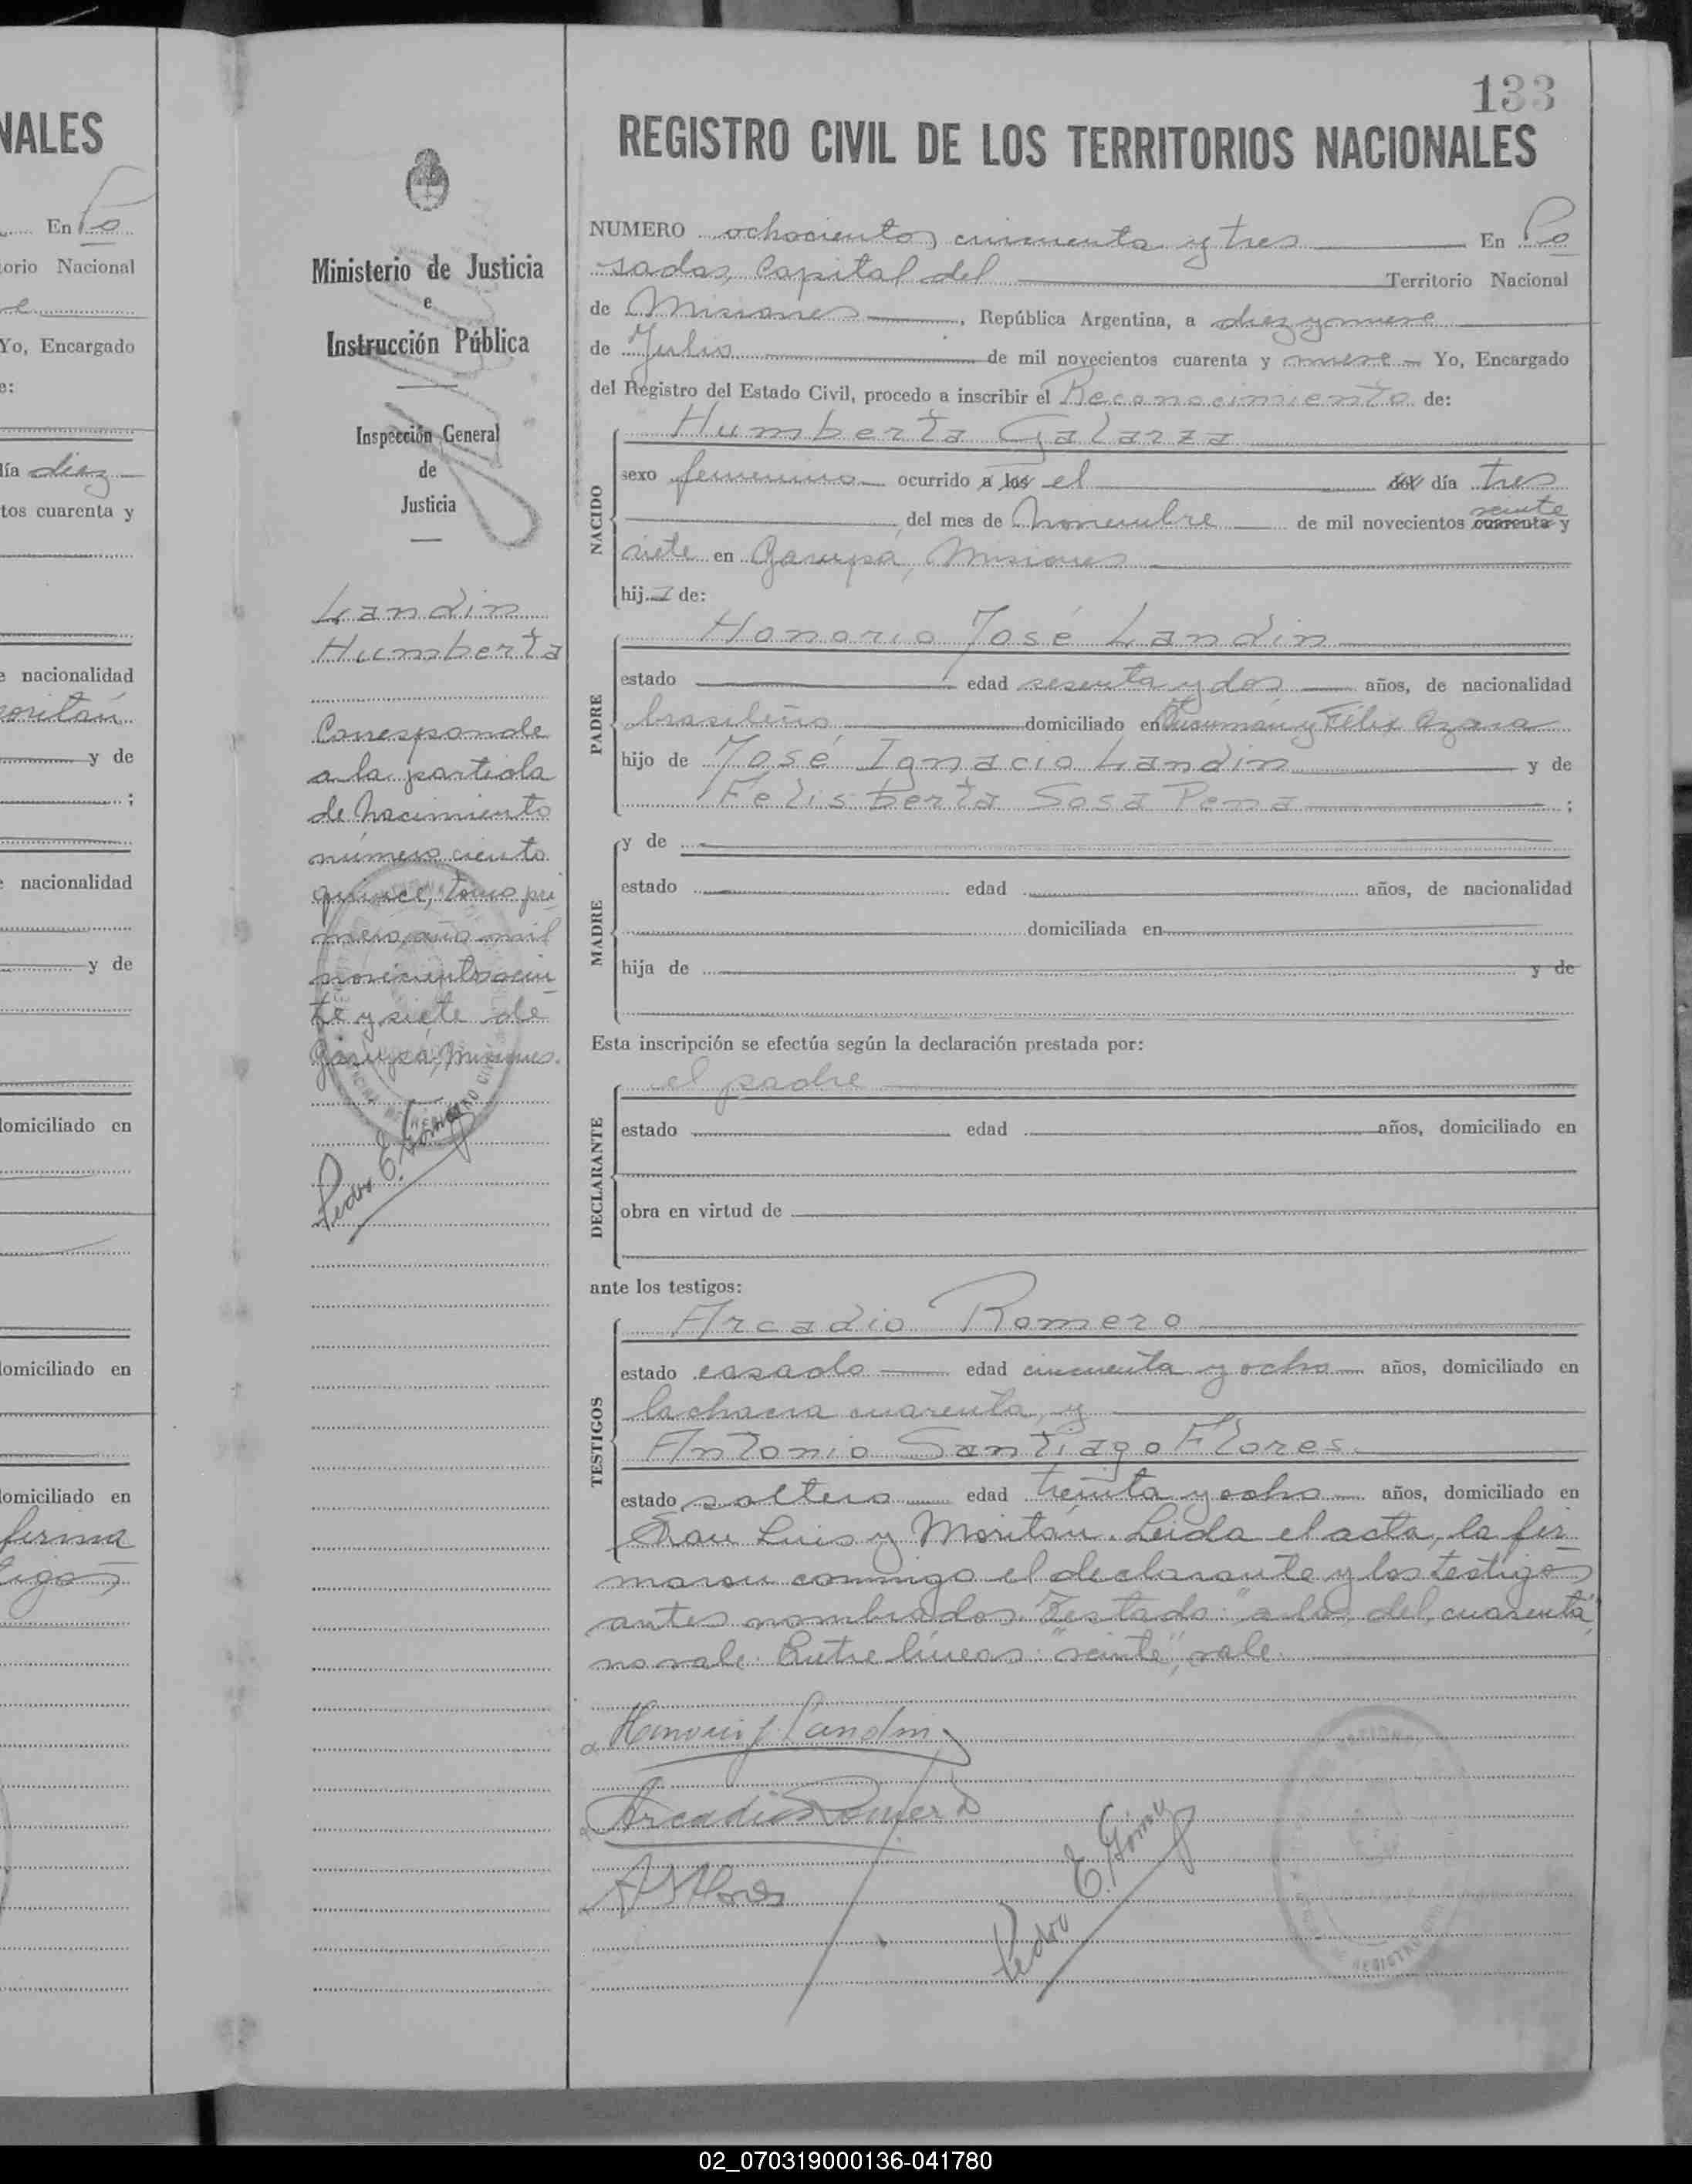 NALES
En Po
orio Nacional
Yo, Encargado
e:
día diez
tos cuarenta y
e nacionalidad
y de
;
e nacionalidad
y de
domiciliado en
domiciliado en
domiciliado en
firma
tigos
Ministerio de Justicia
e
Instrucción Pública
Inspección General
de
Justicia
Landin
Humberta
Corresponde
a la partida
de Nacimiento
número ciento
quince, tomo pri
mero, año mil
novecientos vein
te y siete de
Garupá, Misiones.
Pedro E. Gómez
133
REGISTRO CIVIL DE LOS TERRITORIOS NACIONALES
NUMERO ochocientos cincuenta y tres En Po
sadas, Capital del Territorio Nacional
de Misiones, República Argentina, a diez y nueve
de Julio de mil novecientos cuarenta y nueve Yo, Encargado
del Registro del Estado Civil, procedo a inscribir el Reconocimiento de:
Humberta Galarza
NACIDO
sexo femenino ocurrido a las el del día tres
veinte
del mes de Noviembre de mil novecientos cuarenta y
siete en Garupá, Misiones
hij a de:
PADRE
Honorio José Landin
estado edad sesenta y dos años, de nacionalidad
brasileño domiciliado en Tucumán y Félix Azara
hijo de José Ignacio Landin y de
Felisberta Sosa Pena ;
MADRE
y de
estado edad años, de nacionalidad
domiciliada en
hija de y de
Esta inscripción se efectúa según la declaración prestada por:
DECLARANTE
el padre
estado edad años, domiciliado en
obra en virtud de
ante los testigos:
TESTIGOS
Arcadio Romero
estado casado edad cincuenta y ocho años, domiciliado en
la chacra cuarenta, y
Antonio Santiago Flores
estado soltero edad treinta y ocho años, domiciliado en
San Luis y Moritán. Leida el acta, la fir
maron conmigo el declarante y los testigos
antes nombrados. Testado: "a las, del, cuarenta",
no vale. Entre líneas: "veinte", vale.
Honorio J Landin
Arcadio Romero
A S Flores
Pedro E. Gómez
02_070319000136-041780